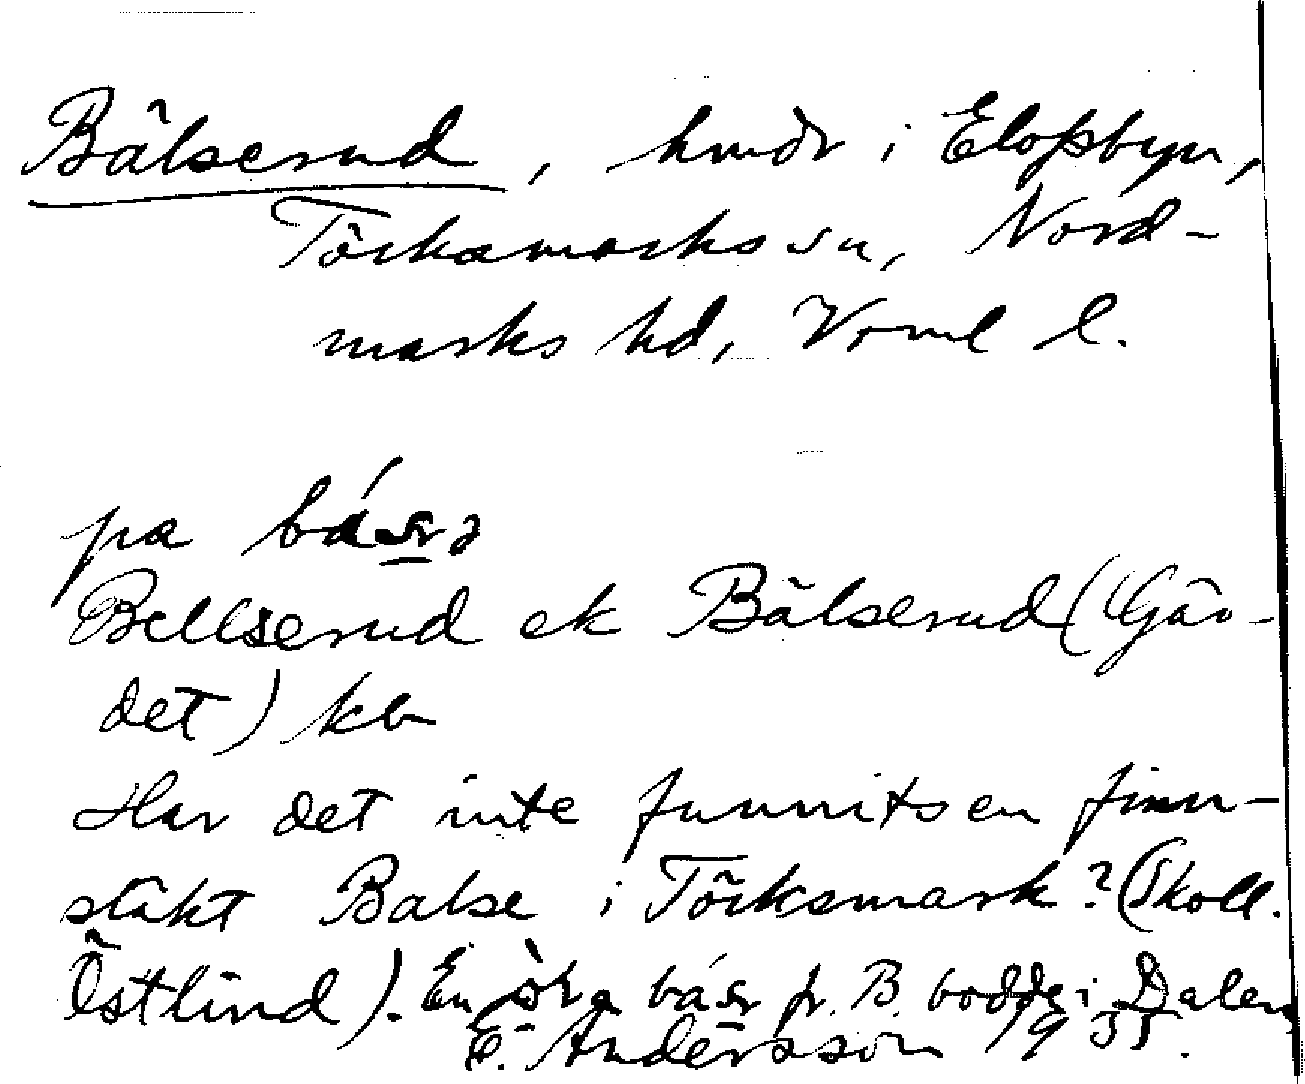 Bälserud, hmdr i Elofsbyn,
Töcksmarks sn, Nord-
marks hd, Vrml l.
pa
Bellserud ek Bälserud (Gär-
det) kbn
Har det inte funnits en finn-
släkt Balse i Töcksmark? (Skoll.
Östlind). En fr. B. bodde i Dalen
E. Andersson 1935.